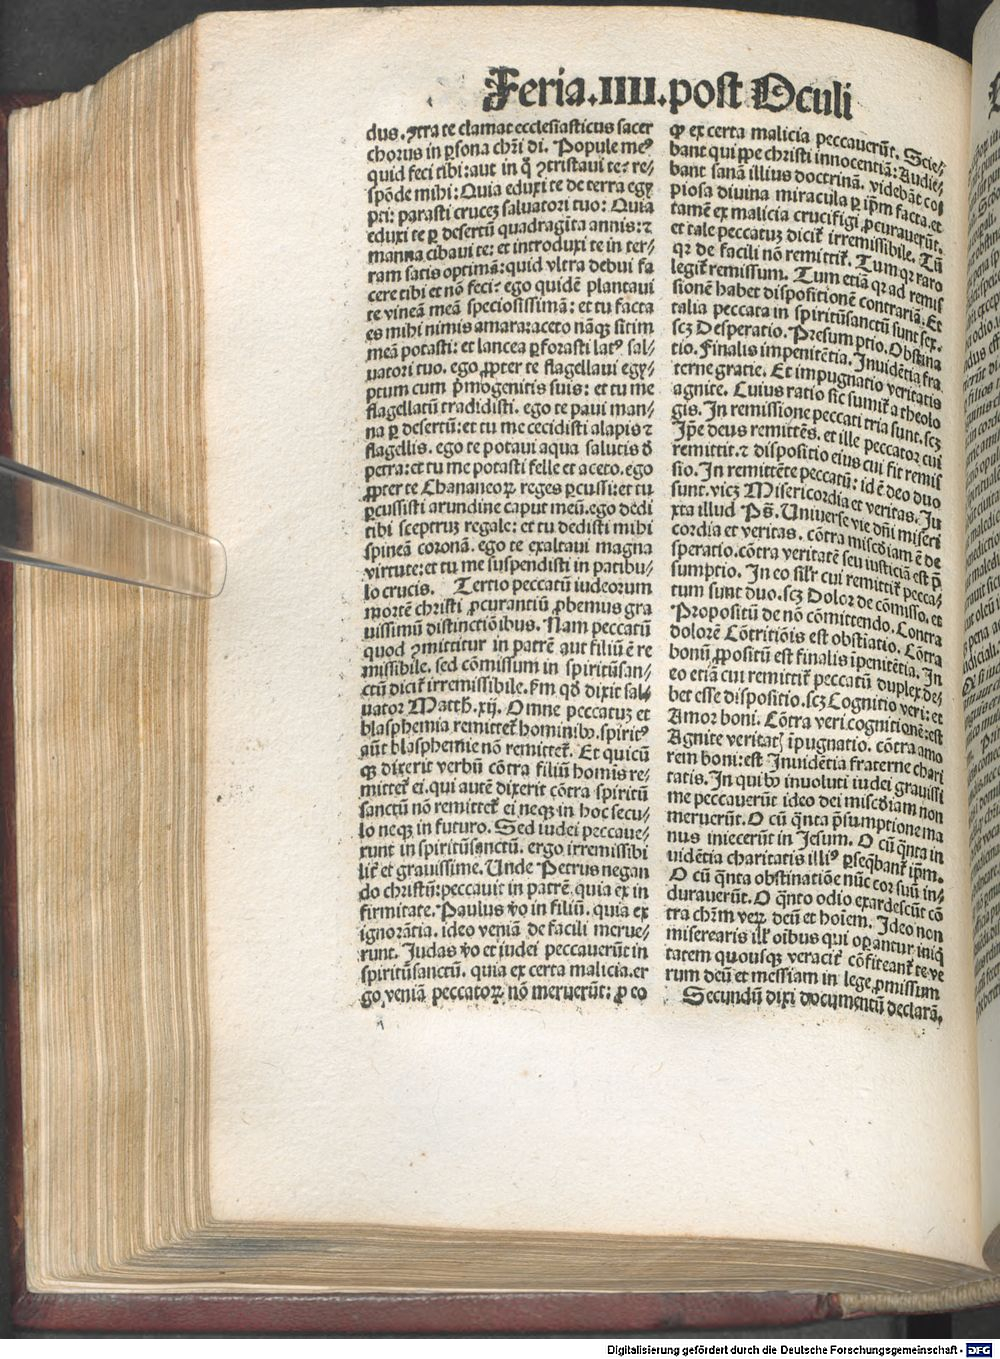 Feria.IIII.post Oculi
dus. ꝯtra te clamat ecclesiasticus sacer
chorus in ꝑsona chr̄i di. Popule meꝰ
quid feci tibi: aut in q̊ ꝯtristaui te: re-
spōde mihi: Quia eduxi te de terra egy
pti: parasti crucez saluatori tuo: Quia
eduxi te ꝑ desertū quadragīta annis: ⁊
manna cibaui te: et introduxi te in ter-
ram satis optimā: quid vltra debui fa
cere tibi et nō feci: ego quidē plantaui
te vineā meā speciosissimā: et tu facta
es mihi nimis amara: aceto nāqꝫ sitim
meā potasti: et lancea ꝑforasti latꝰ sal-
uatori tuo. ego ꝓpter te flagellaui egy-
ptum cum p̄mogenitis suis: et tu me
flagellatū tradidisti. ego te paui man-
na ꝑ desertū: et tu me cecidisti alapis ⁊
flagellis. ego te potaui aqua salutis d̄
petra: et tu me potasti felle et aceto. ego
ꝓpter te Chananeoꝝ reges ꝑcussi: et tu
ꝑcussisti arundine caput meū. ego dedi
tibi sceptruꝫ regale: et tu dedisti mihi
spineā coronā. ego te exaltaui magna
virtute: et tu me suspendisti in patibu-
lo crucis. Tertio peccatū iudeorum
mortē christi ꝓcurantiū ꝓbemus gra
uissimū distinctiōibus. Nam peccatū
quod ꝯmittitur in patrē aut filiū ē re
missibile. sed cōmissum in spiritūsan-
ctū dicit̄ irremissibile. ẜm qd̓ dixit sal-
uator Matth̓. xij. Omne peccatuꝫ et
blasphemia remittet̄ hominibꝰ. spiritꝰ
aūt blasphemie nō remittet̄. Et quicū
qꝫ dixerit verbū cōtra filiū homīs re-
mittet̄ ei. qui autē dixerit cōtra spiritū
sanctū nō remittet̄ ei neqꝫ in hoc secu-
lo neqꝫ in futuro. Sed iudei peccaue-
runt in spiritūsanctū. ergo irremissibi
lit̄ et grauissime. Unde Petrus negan
do christū: peccauit in patrē. quia ex in
firmitate. Paulus v̓o in filiū. quia ex
ignorātia. ideo veniā de facili merue-
runt. Judas v̓o et iudei peccauerūt in
spiritūsanctū. quia ex certa malicia. er
go veniā peccatoꝝ nō meruerūt: ꝑ eo
ꝙ ex certa malicia peccauerūt. Scie-
bant qui ꝓpe christi innocentiā: Audie-
bant sanā illius doctrinā. videbāt co
piosa diuina miracula ꝑ ip̄m facta. et
tamē ex malicia crucifigi ꝓcurauerūt.
et tale peccatuꝫ dicit̄ irremissibile. Tū
qꝛ de facili nō remittit̄. Tum qꝛ raro
legit̄ remissum. Tum etiā qꝛ ad remis
sionē habet dispositionē contrariā. Et
talia peccata in spiritūsanctū sunt sex.
scꝫ Desperatio. Presumptio. Obstina
tio. Finalis impenitētia. Inuidētia fra
terne gratie. Et impugnatio veritatis
agnite. Cuius ratio sic sumit̄ a theolo
gis. In remissione peccati tria sunt. scꝫ
Ip̄e deus remittēs. et ille peccator cui
remittit̄. ⁊ dispositio eius cui fit remis
sio. In remittēte peccatū: id ē deo duo
sunt. vicꝫ Misericordia et veritas. Ju
xta illud Ps̄. Uniuerse vie dn̄i miseri
cordia et veritas. cōtra misc̄diam ē de
speratio. cōtra veritatē seu iusticiā est p̄
sumptio. In eo sil̄r cui remittit̄ pecca-
tum sunt duo. scꝫ Dolor de cōmisso. et
Propositū de nō cōmittendo. Contra
dolorē Cōtritiōis est obstiatio. Cōtra
bonū ꝓpositū est finalis īpenitētia. In
eo etiā cui remittit̄ peccatū duplex de-
bet esse dispositio. scꝫ Cognitio veri: et
Amor boni. Cōtra veri cognitionē: est
Agnite veritatꝭ īpugnatio. cōtra amo
rem boni: est Inuidētia fraterne chari
tatis. In quibꝰ inuoluti iudei grauissi
me peccauerūt ideo dei misc̄diam non
meruerūt. O cū q̄nta p̄sumptione ma
nus iniecerūt in Jesum. O cū q̄nta in
uidētia charitatis illiꝰ ꝑseq̄bant̄ ip̄m.
O cū q̄nta obstinatiōe nūc cor suū in-
durauerūt. O q̄nto odio exardescūt cō
tra chr̄m veꝝ deū et hoīem. Ideo non
miserearis illꝭ oībus qui oꝑantur iniq̄
tatem quousqꝫ veracit̄ cōfiteant̄ te ve
rum deū et messiam in lege ꝓmissum
Secundū dixi documentū declarā.
Digitalisierung gefördert durch die Deutsche Forschungsgemeinschaft - DFG